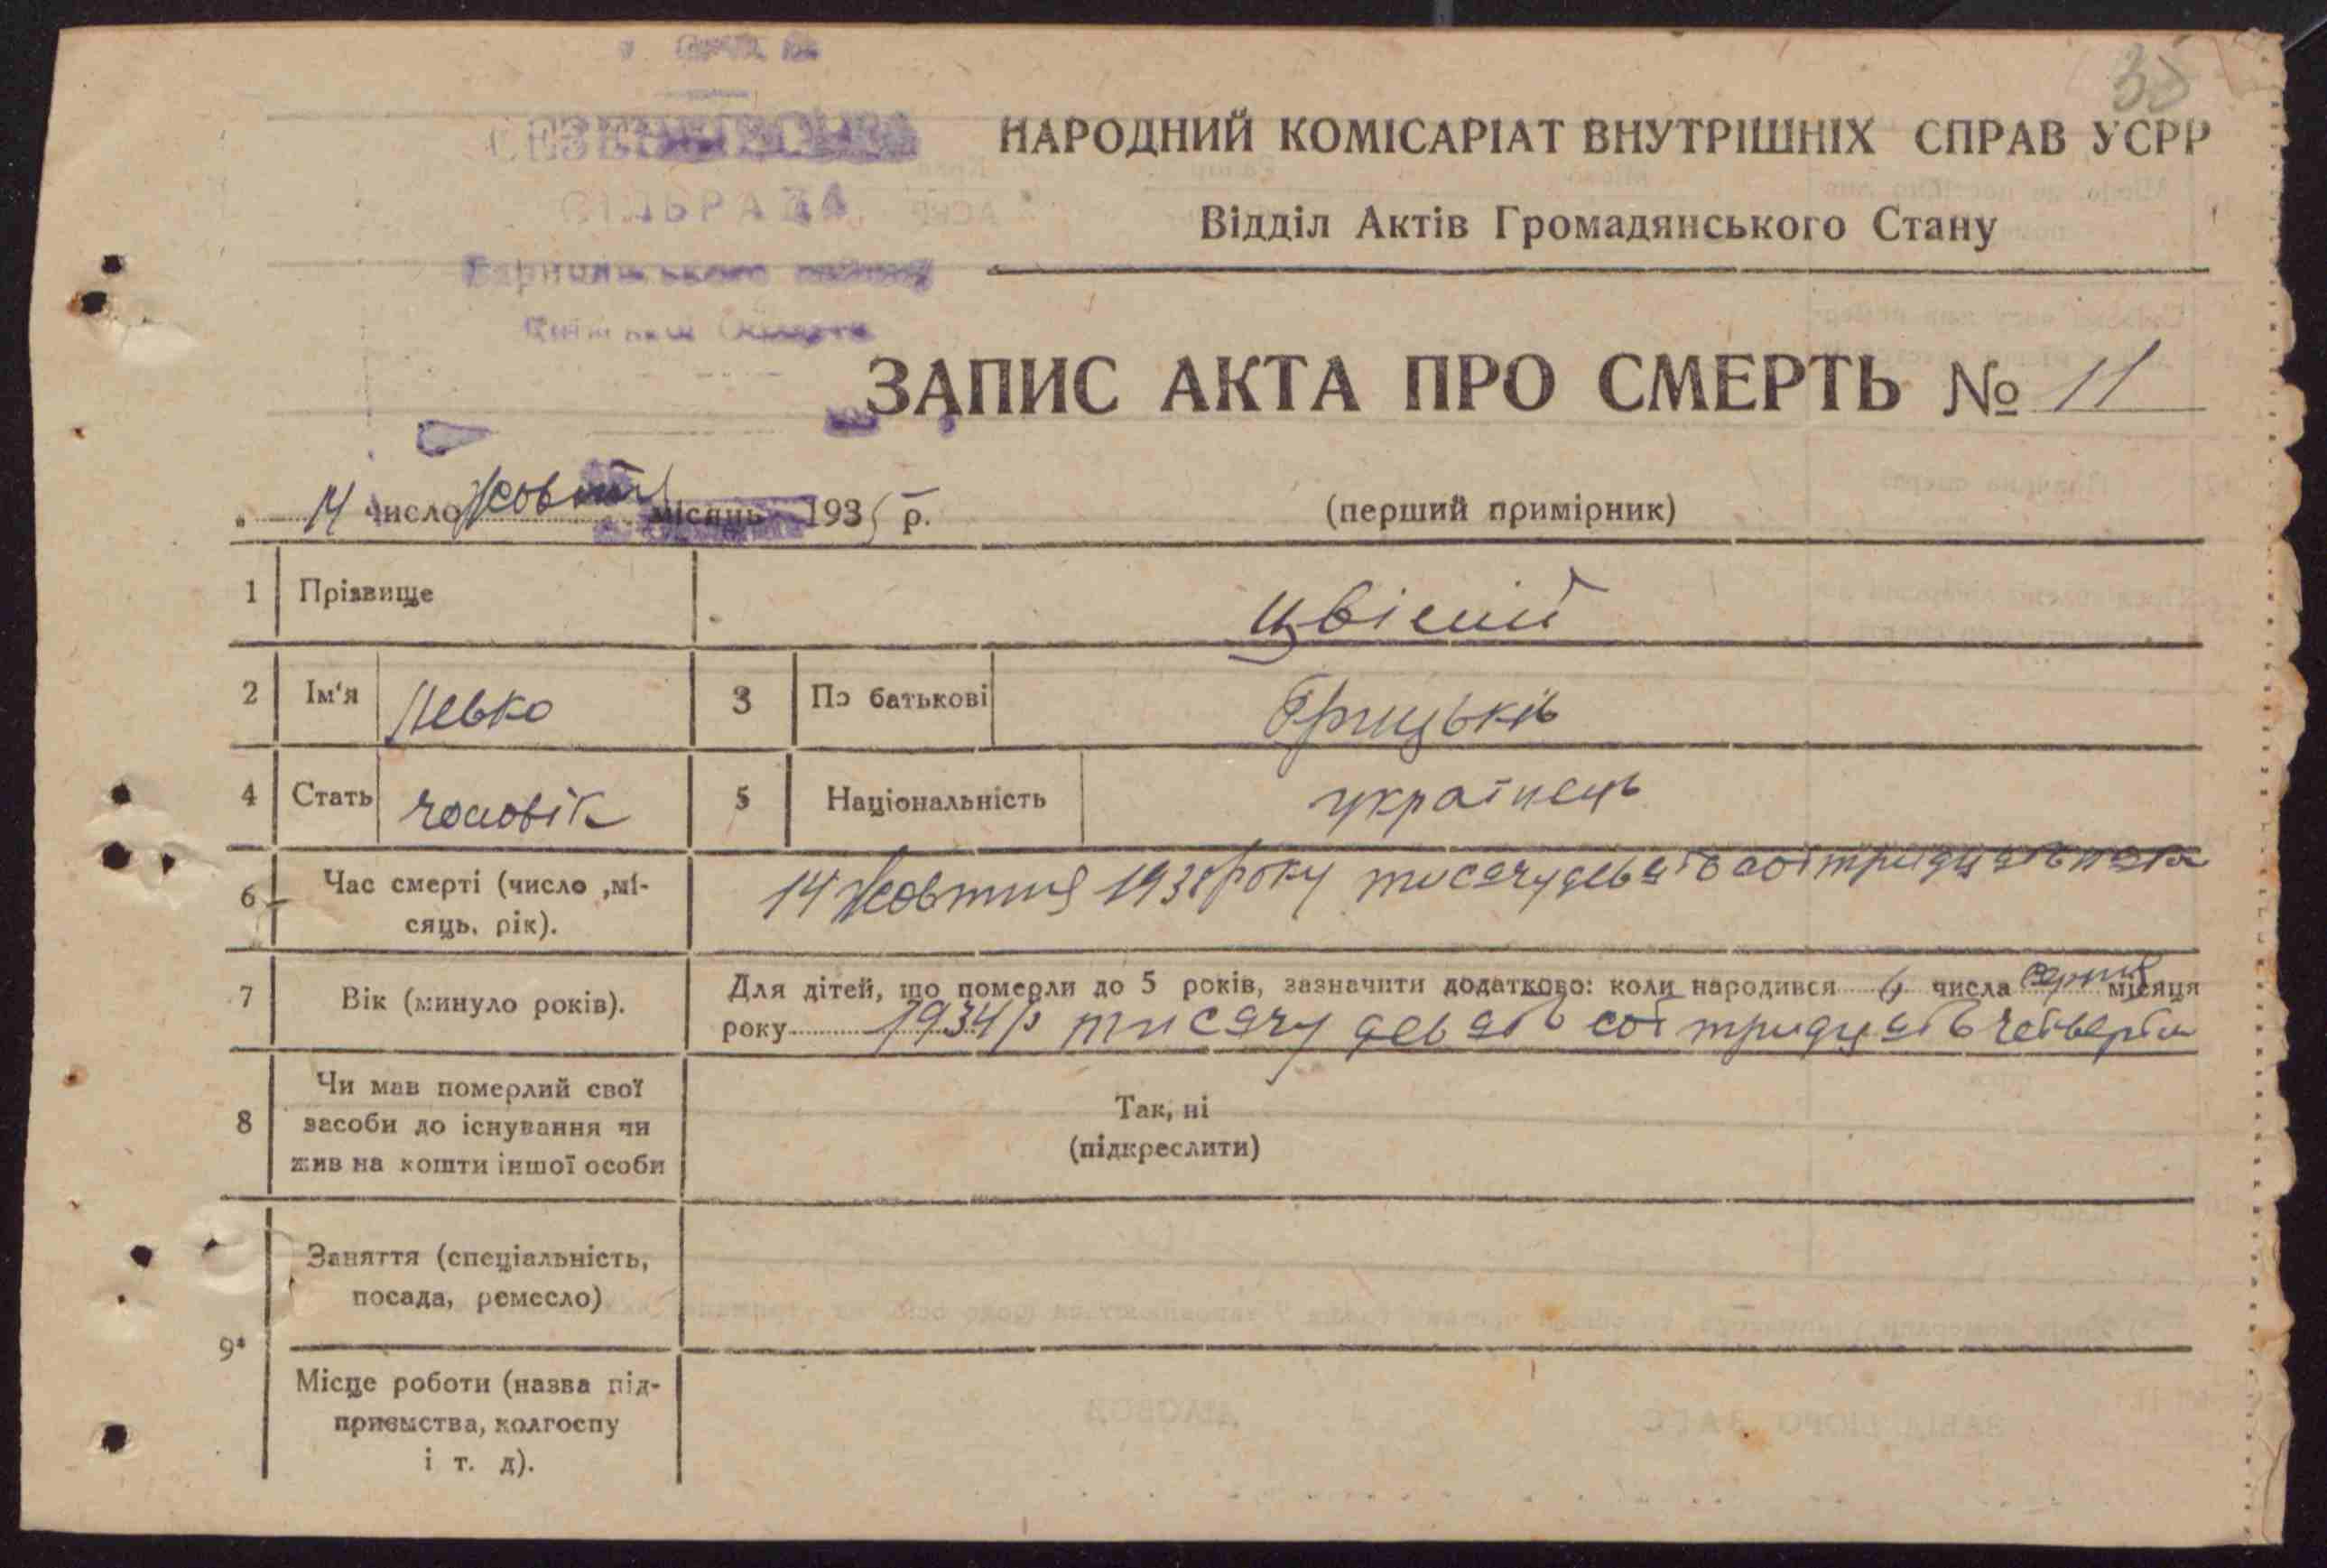 35
НАРОДНИЙ КОМІСАРІАТ ВНУТРІШНІХ СПРАВ УСРР
СІЛЬРАДА
Відділ Актів Громадянського Стану
ЗАПИС АКТА ПРО СМЕРТЬ № 11
14 число Жовтня місяць 1935 р.
(перший примірник)
1 Прізвище
2 Ім'я Левко 3 По батькові Грицьків
4 Стать чоловік 5 Національність українець
6 Час смерті (число ,мі-
сяць, рік).
14 Жовтня 1935 року тисячу девятсот тридцять пята
7 Вік (минуло років).
Для дітей, що померли до 5 років, зазначити додатково: коли народився 6 числа серпня місяця
року 1934 р тисячу девять сот тридцять четверта
8 Чи мав померлий свої
засоби до існування чи
жив на кошти іншої особи
Так, ні
(підкреслити)
9*
Заняття (спеціальність,
посада, ремесло)
Місце роботи (назва під-
приємства, колгоспу
і т. д).